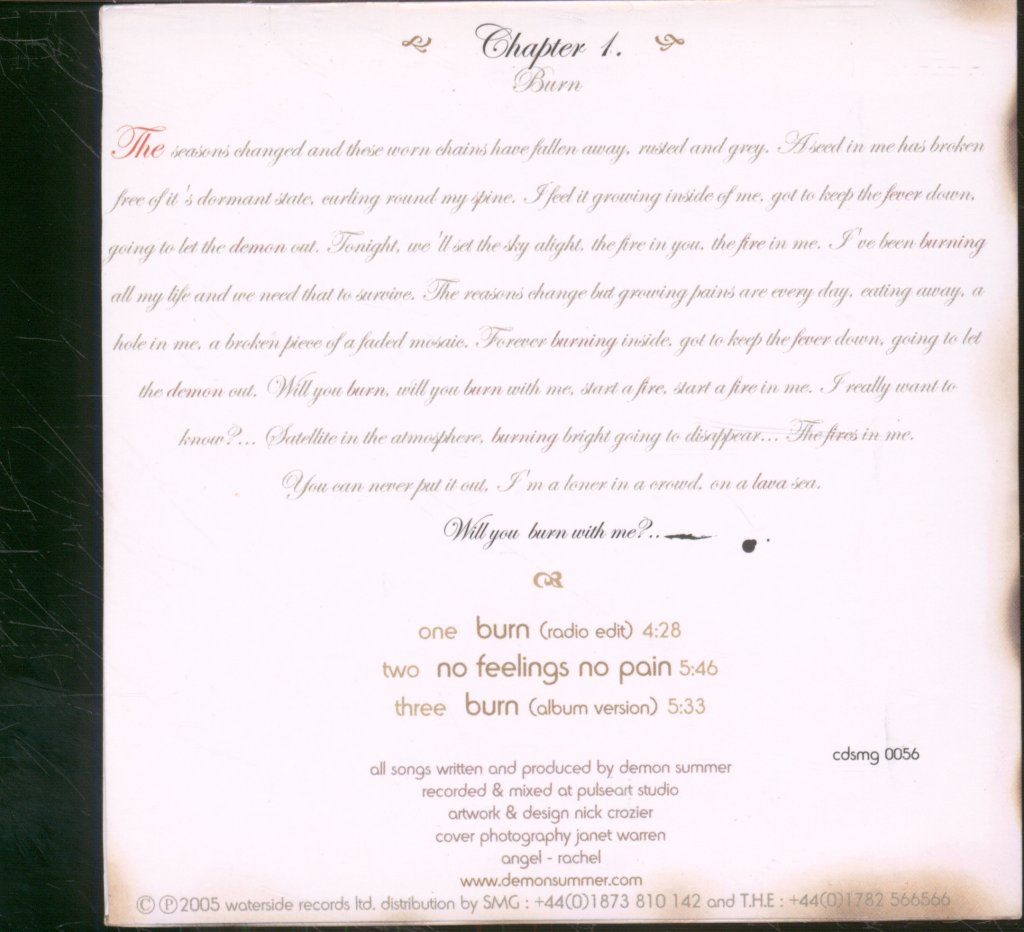 Chapter 1.
Burn
The seasons changed and these worn chains have fallen away, rusted and grey. A seed in me has broken
free of it's dormant state, curling round my spine. I feel it growing inside of me, got to keep the fever down,
going to let the demon out. Tonight, we'll set the sky alight, the fire in you, the fire in me. I've been burning
all my life and we need that to survive. The reasons change but growing pains are every day, eating away, a
hole in me, a broken piece of a faded mosaic. Forever burning inside, got to keep the fever down, going to let
the demon out. Will you burn, will you burn with me, start a fire, start a fire in me. I really want to
know?... Satellite in the atmosphere, burning bright going to disappear... The fires in me.
You can never put it out, I'm a loner in a crowd, on a lava sea.
Will you burn with me?..
one burn (radio edit) 4:28
two no feelings no pain 5:46
three burn (album version) 5:33
cdsmg 0056
all songs written and produced by demon summer
recorded & mixed at pulseart studio
artwork & design nick crozier
cover photography janet warren
angel - rachel
www.demonsummer.com
© ℗ 2005 waterside records ltd. distribution by SMG : +44(0)1873 810 142 and T.H.E : +44(0)1782 566566